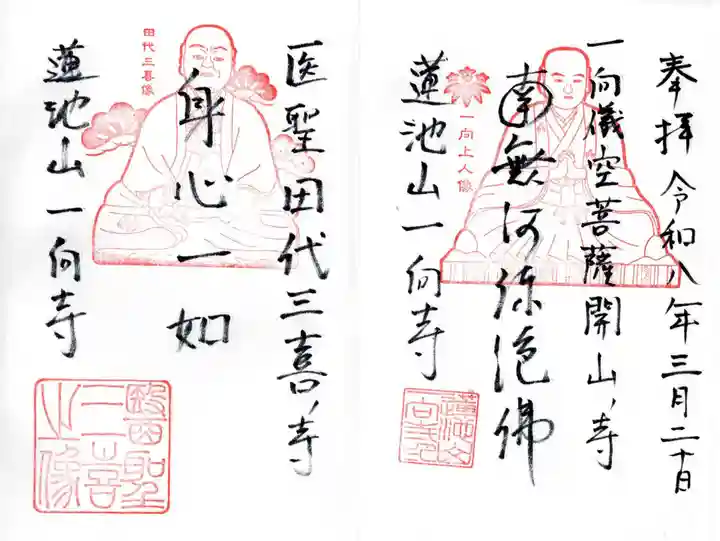 奉拝 令和八年三月二十日
一向儀空菩薩開山ノ寺
南無阿弥陀佛
一向上人像
蓮池山一向寺
医聖田代三喜ノ寺
身心一如
田代三喜像
蓮池山一向寺
醫聖
三喜
之像